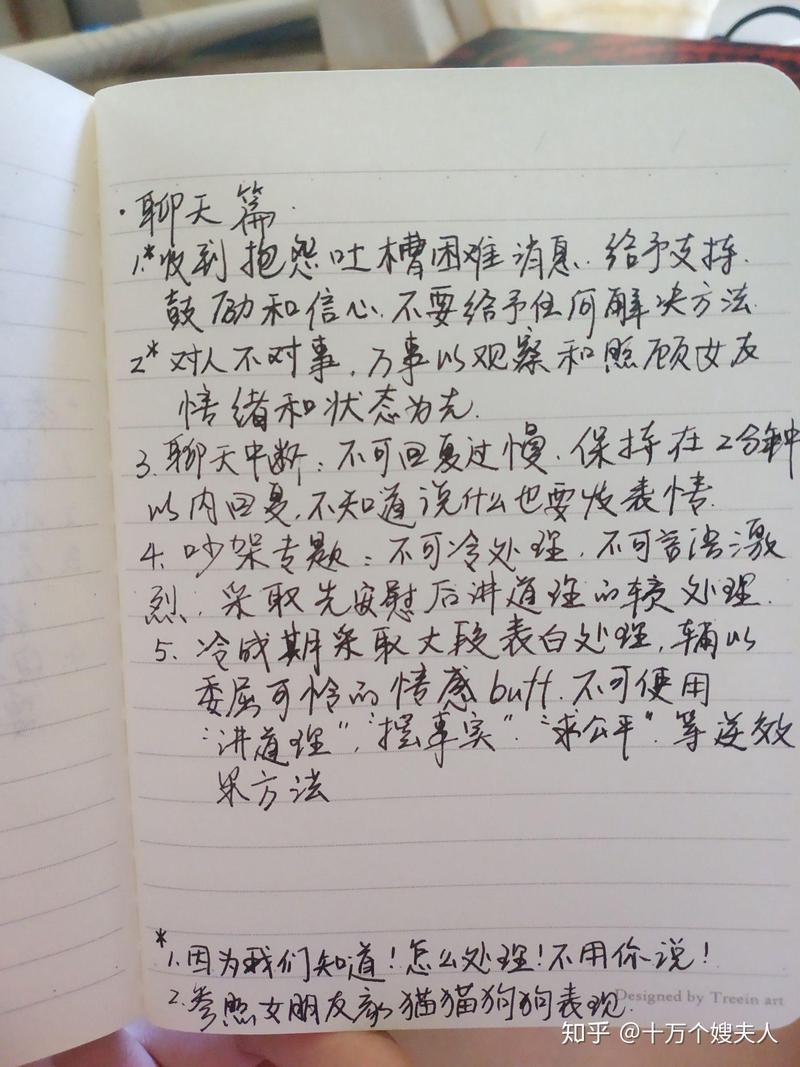 ·聊天篇.
1.*收到抱怨吐槽困难消息.给予支持.
鼓励和信心.不要给予任何解决方法.
2* 对人不对事,万事以观察和照顾女友
情绪和状态为先.
3.聊天中断:不可回复过慢.保持在2分钟
以内回复,不知道说什么也要发表情.
4.吵架专题:不可冷处理,不可言语激
烈,采取先安慰后讲道理的转换处理.
5.冷战期采取大段表白处理,辅以
委屈可怜的情感buff.不可使用
"讲道理","摆事实"."求公平".等逆效
果方法
*1.因为我们知道!怎么处理!不用你说!
2.参照女朋友家猫猫狗狗表现.
Designed by Treein art
知乎 @十万个嫂夫人